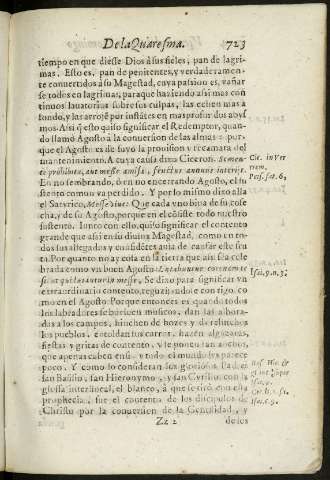 De la Quaresma. 723
tiempo en que diesse Dios à sus fieles, pan de lagri
mas. Esto es, pan de penitentes, y verdaderamen
te conuertidos à su Magestad, cuya passion es, vañar
se todos en lagrimas, para que haziendo assi mas con
tinuos lauatorios sobre sus culpas, las echen mas à
fondo, y las arroje por instātes en mas profundos abys
mos. Assi q̃ esto quiso significar el Redemptor, quan-
do llamò Agosto à la conuersion de las almas: por-
que el Agosto es de suyo la prouision y recamara del
mantenimiento. A cuya causa dixo Ciceron. Semen-
te prohibita, aut messe amissa, fructus annuus interit.
En no sembrando, ò en no encerrando Agosto, el su
stento comun va perdido. Y por lo mismo dixo alla
el Satyrico, Messe viue: Que cada vno viua de su cose
cha, y de su Agosto, porque en el cōsiste todo nuestro
sustento. Iunto con ello, quiso significar el contento
grande que assi en su diuina Magestad, como en to-
dos sus allegados y confidētes auia de causar este su
ceso. Por quanto no ay cosa en la tierra que assi sea cele
brada como vn buen Agosto: Laetabuntur coram te
sicut qui laetantur in messe, Se dixo para significar vn
extraordinario contento, regulandole con el que to-
mo en el Agosto: Porque entonces es quando todos
los labradores se bueluen musicos, dan las albora-
das a los campos, hinchen de bozes y de relinchos
los pueblos, entoldan los carros, hazen algazaras,
fiestas y gritas de contento, y le ponen tan ancho,
que apenas caben en si, y todo el mundo les parece
poco. Y como lo consideran los gloriosos Padres
san Basilio, san Hieronymo, y san Cyrilo, con la
glossa interlineal, el blanco, à que se tirò en esta
prophecia, fue el contento de los discipulos de
Christo por la conuersion de la Gentilidad, y
Zz 2 de los
Cic. in Ver
rem.
Pers. sat. 6,
Isai. 9. n. 3.
Isai. 9.
Isai. c. 9.